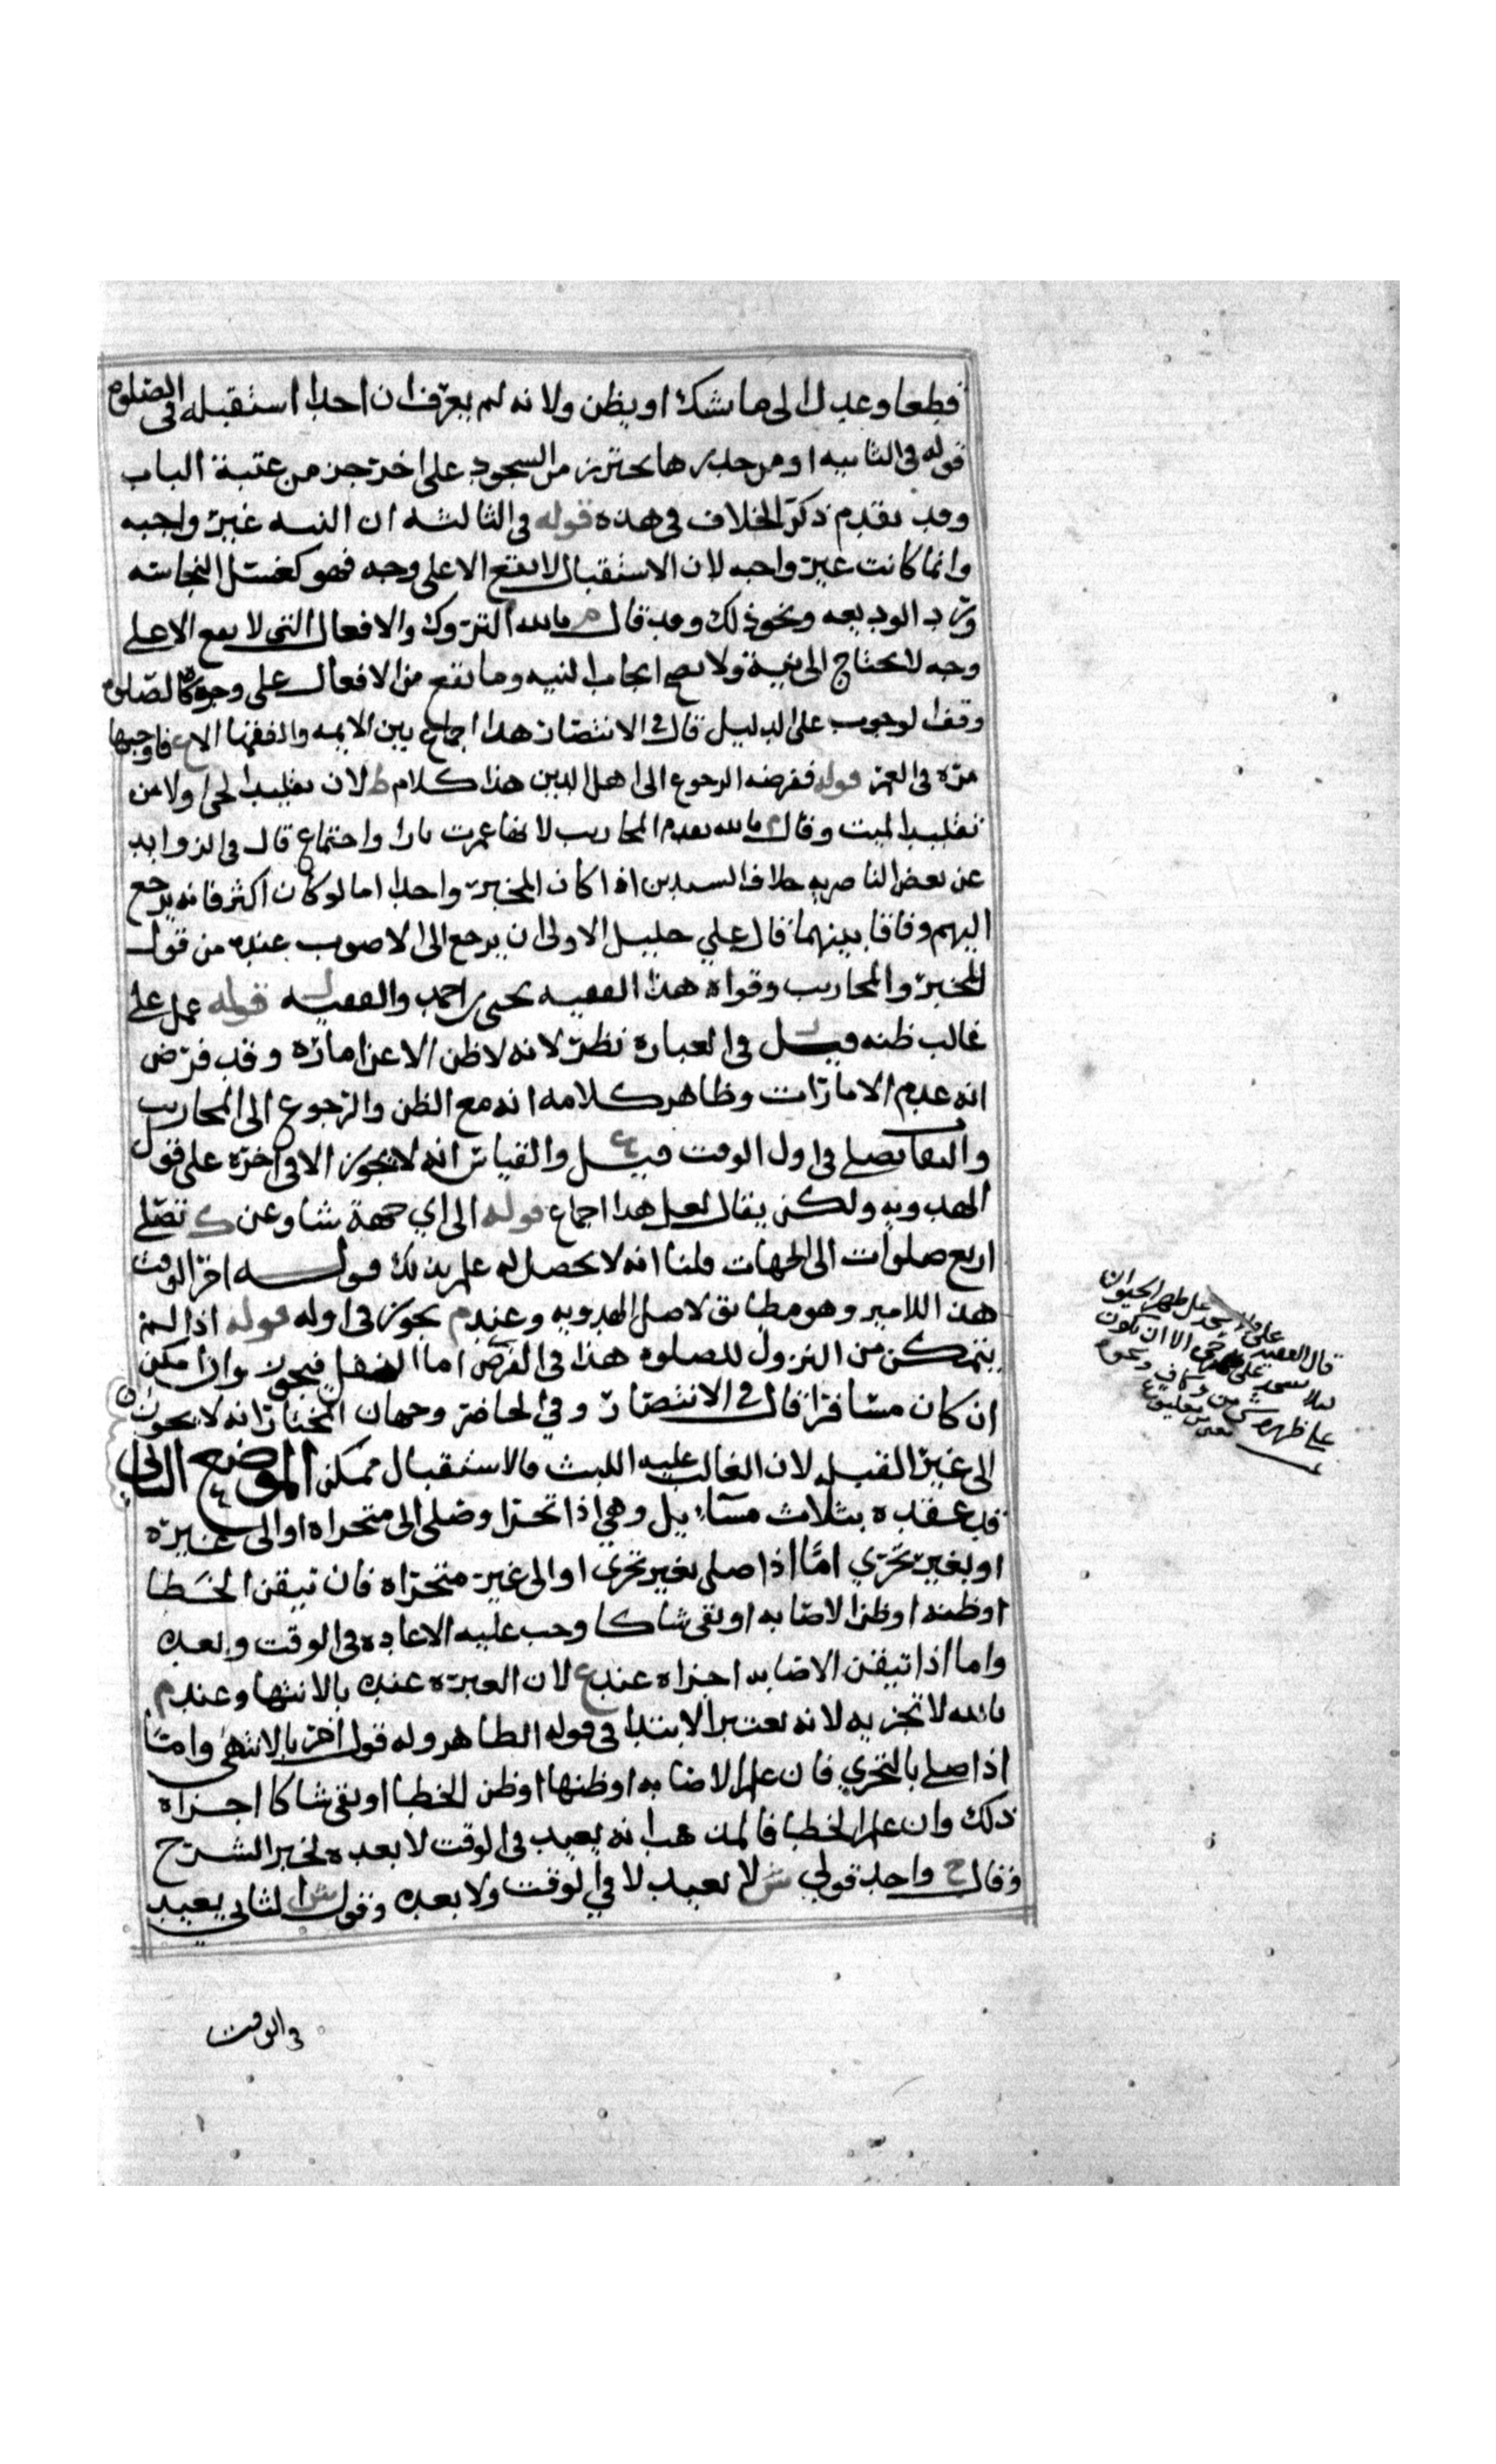 قطعا وعدل الى ما يشك او يظن ولانه لم يعرف ان احدا استقبله في الصلوه
قوله في الثانيه او من جدرها يحترز من السجود على اخر جزء من عتبة الباب
وقد تقدم ذكر الخلاف في هذه قوله في الثالثه ان النيه غير واجبه
وانما كانت غير واجبه لان الاستقبال لا يقع الا على وجه فهو كغسل النجاسه
ورد الوديعه ونحو ذلك وقد قال م بالله التروك والافعال التي لا يقع الا على
وجه لا يحتاج الى نية ولا يصح ايجاب النيه وما يقع من الافعال على وجوه كالصلوه
وقف الوجوب على الدليل قال في الانتصار هذا اجماع بين الايمه والفقها الا فاوجبها
مره في العمر قوله ففرضه الرجوع الى اهل الدين هذا كلام ط لان تقليد الحي اولى من
تقليد الميت وقال م بالله يقدم المحاريب لانها عمرت بارا واجتماع قال في الزوايد
عن بعض الناصريه خلاف السيدين اذا كان المخبر واحدا اما لو كان اكثر فانه يرجع
اليهم وفاقا بينهما قال علي خليل الاولى ان يرجع الى الاصوب عنده من قول
المخبر والمحاريب وقواه هذا الفقيه يحيى بن احمد والفقيه ل قوله عمل على
غالب ظنه قيل ل في العبارة نظر لانه لا ظن الا عن امارة وقد فرض
انه عدم الامارات وظاهر كلامه انه مع الظن والرجوع الى المحاريب
والبقا يصلي في اول الوقت قيل ع والقياس انه لا يجوز الا في اخره على قول
الهدويه ولكن يقال لعل هذا اجماع قوله الى اي جهة شا وعن ك تصلي
اربع صلوات الى الجهات قلنا انه لا يحصل له علم بذلك قوله اخر الوقت
هذا للامير وهو مطابق لاصل الهدويه وعند م يجوز في اوله قوله اذا لم
يتمكن من النزول للصلوه هذا في الفرض اما النفل فيجوز وان امكن
ان كان مسافرا قال في الانتصار وفي الحاضر وجهان المختار انه لا يجوز
الى غير القبله لان الغالب عليه اللبث فالاستقبال ممكن الموضع الثاني
قد عقده بثلاث مسايل وهي اذا تحرا وصلى الى متحراه او الى غيره
او بغير تحري اما اذا صلى بغير تحري او الى غير متحراه فان تيقن الخطا
او ظنه او ظن الاصابه او بقي شاكا وجب عليه الاعاده في الوقت وبعده
واما اذا تيقن الاصابه اجزاه عند ع لان العبرة عنده بالانتها وعند م
بالله لا تجزيه لانه يعتبر الابتدا في قوله الظاهر وله قول اخر بالانتهى واما
اذا صلى بالتحري فان علم الاصابه او ظنها او ظن الخطا او بقي شاكا اجزاه
ذلك وان علم الخطا فالمذهب انه يعيد في الوقت لا بعده لخبر السرح
وقال ح واحد قولي ش لا يعيد لا في الوقت ولا بعده وقول ش الثاني يعيد
في الوقت
قال الفقيه على ظهر الحيوان
الا ان يكون
على ظهره